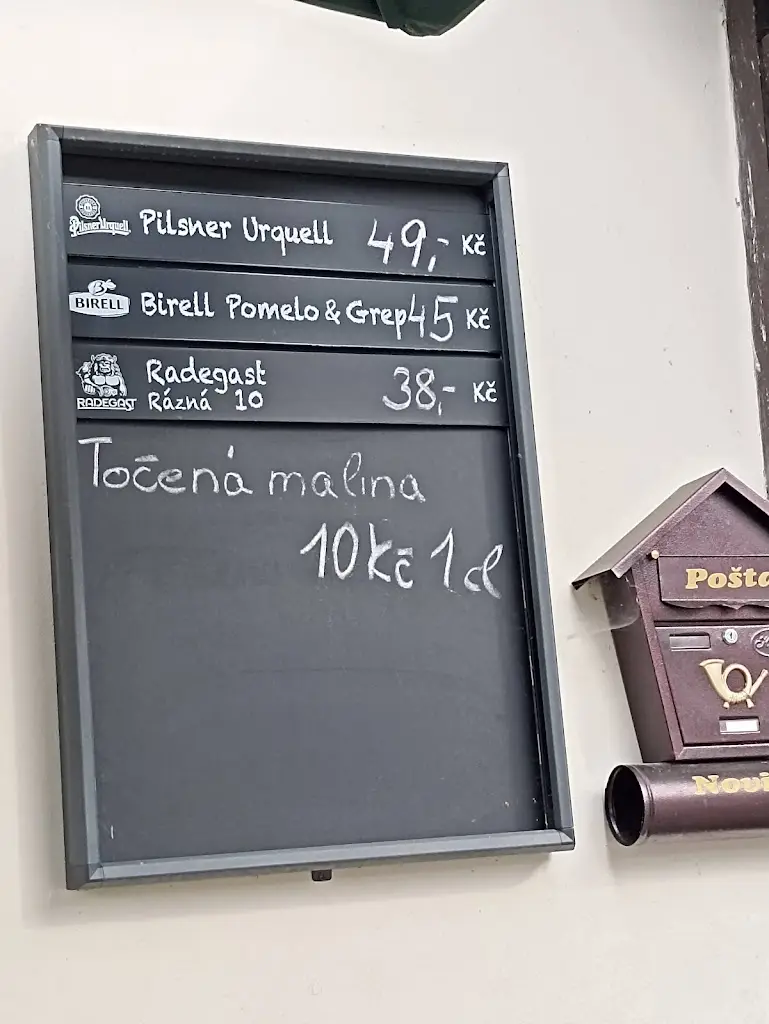 Pilsner Urquell Pilsner Urquell 49,- Kč
BIRELL Birell Pomelo & Grep 45 Kč
Radegast 38,- Kč
RADEGAST Rázná 10
Točená malina
10 Kč 1 dl
Pošta
Novi